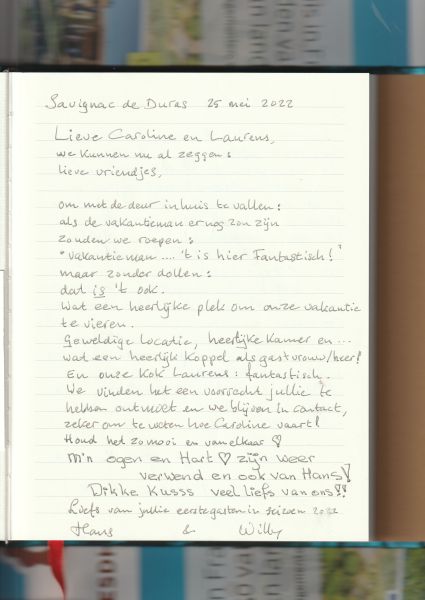 Savignac de Duras 25 mei 2022
Lieve Caroline en Laurens,
we kunnen nu al zeggen:
lieve vriendjes,
om met de deur in huis te vallen:
als de vakantieman er nog zou zijn
zouden we roepen:
"vakantieman .... 't is hier Fantastisch!"
maar zonder dollen:
dat is 't ook.
Wat een heerlijke plek om onze vakantie
te vieren.
Geweldige locatie, heerlijke kamer en ...
wat een heerlijk koppel als gastvrouw/heer!
En onze kok Laurens: fantastisch.
We vinden het een voorrecht jullie te
hebben ontmoet en we blijven in contact,
zeker om te weten hoe Caroline vaart!
Houd het zo mooi en van elkaar ♡
M'n ogen en Hart ♡ zijn weer
verwend en ook van Hans!
Dikke Kusss veel liefs van ons!!
Liefs van jullie eerste gasten in seizoen 2022
Hans & Willy